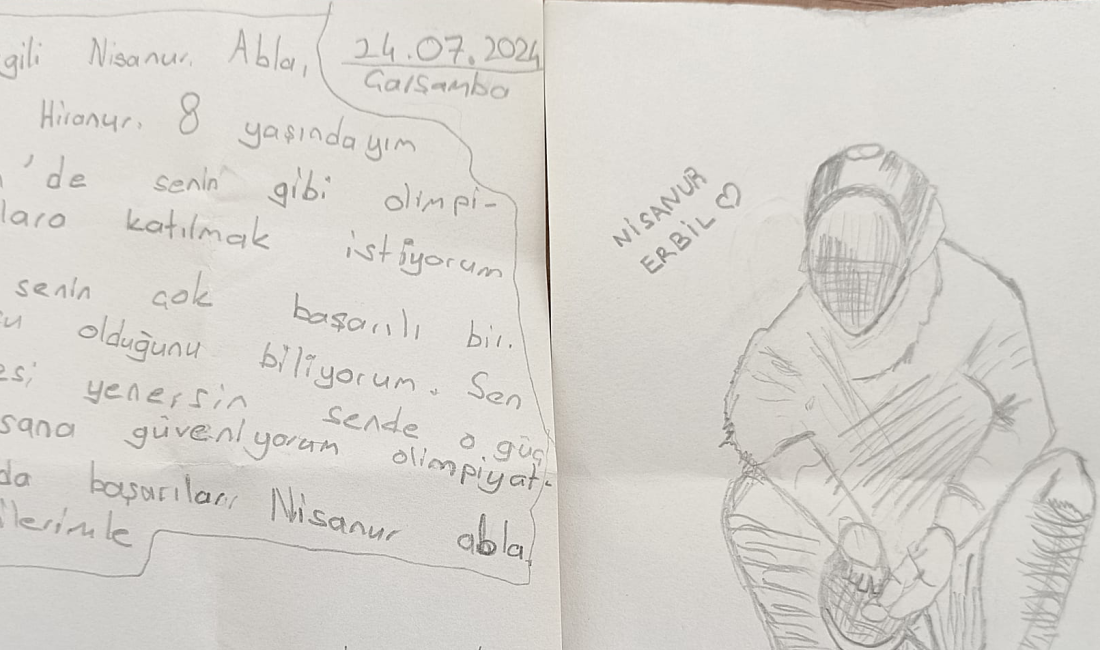 gili Nisanur Abla,
24.07.2024
Çarşamba
Hiranur. 8 yaşındayım
'de senin gibi olimpi-
lara katılmak istiyorum
senin çok başarılı bir.
olduğunu biliyorum. Sen
esi yenersin sende o güç
sana güveniyorum olimpiyat-
da başarılar, Nisanur abla
ilerimle
NİSANUR
ERBİL ♡